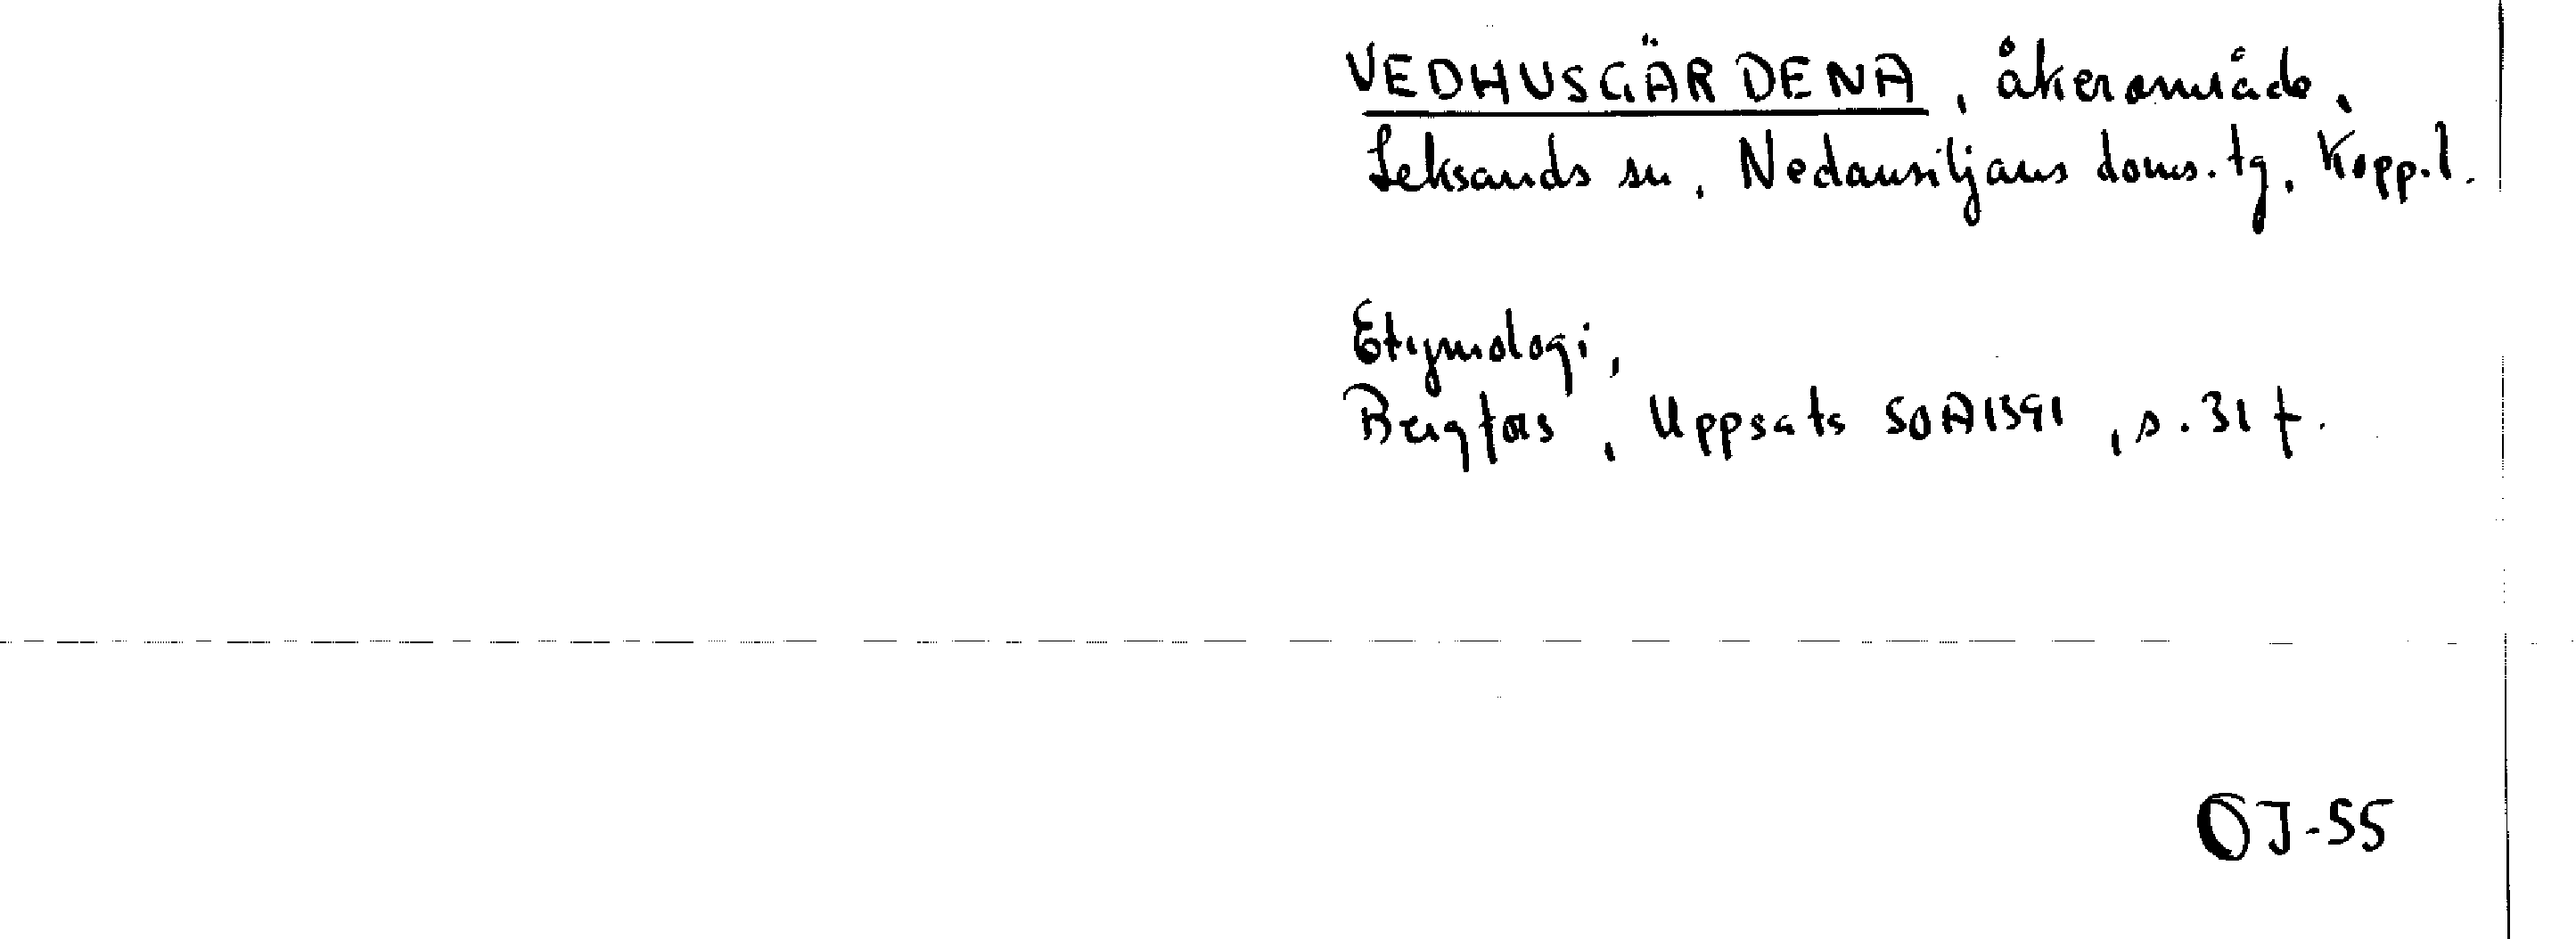 VEDHUSGÄRDENA, åkerområde,
Leksands sn, Nedansiljans doms. tg, Kopp.l.
Etymologi,
Bergfors, Uppsats SOA1391, s. 31 f.
OJ-55